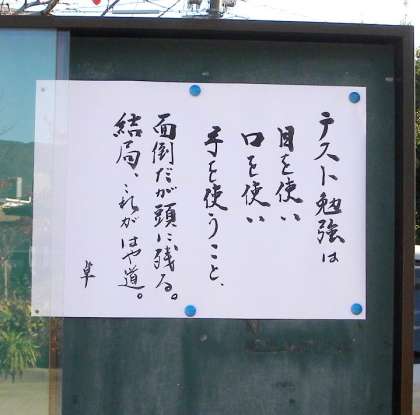 テスト勉強は
目を使い
口を使い
手を使うこと、
面倒だが頭に残る。
結局、これがはや道。
草